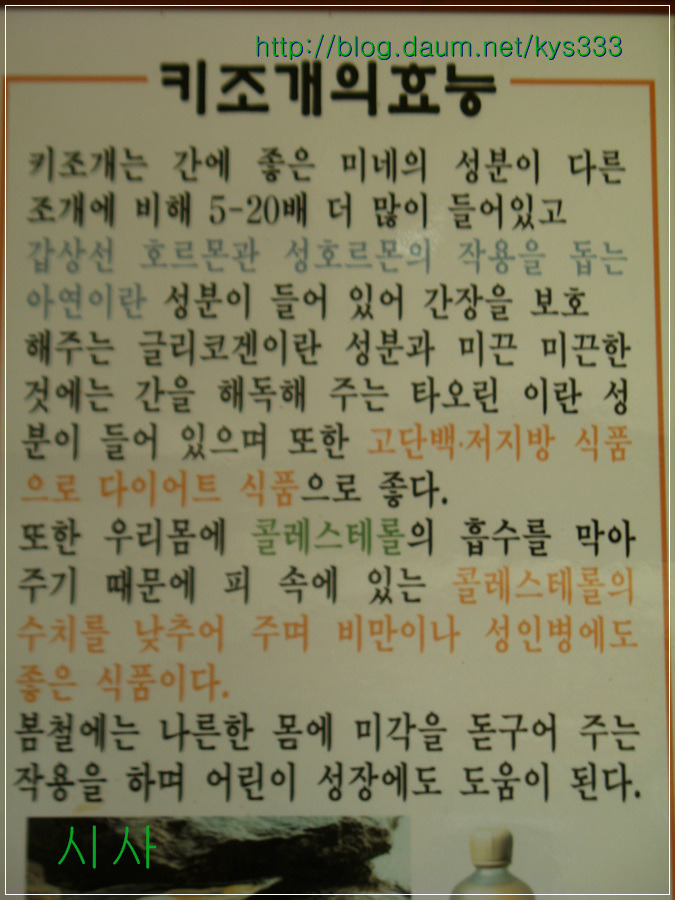 http://blog.daum.net/kys333
키조개의효능
키조개는 간에 좋은 미네의 성분이 다른
조개에 비해 5-20배 더 많이 들어있고
갑상선 호르몬관 성호르몬의 작용을 돕는
아연이란 성분이 들어 있어 간장을 보호
해주는 글리코겐이란 성분과 미끈 미끈한
것에는 간을 해독해 주는 타오린 이란 성
분이 들어 있으며 또한 고단백·저지방 식품
으로 다이어트 식품으로 좋다.
또한 우리몸에 콜레스테롤의 흡수를 막아
주기 때문에 피 속에 있는 콜레스테롤의
수치를 낮추어 주며 비만이나 성인병에도
좋은 식품이다.
봄철에는 나른한 몸에 미각을 돋구어 주는
작용을 하며 어린이 성장에도 도움이 된다.
시사